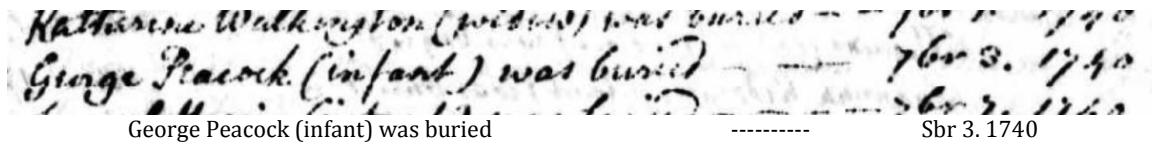 Katharine Walkington (widow) was buried - - 7br 1. 1740
George Peacock (infant) was buried - —— 7br 3. 1740
was buried 7br 7. 1740
George Peacock (infant) was buried ---------- Sbr 3. 1740